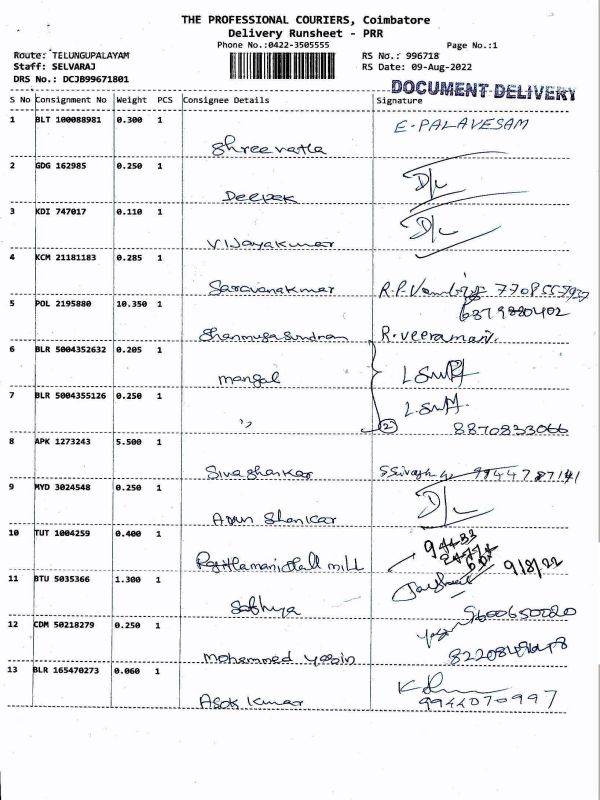 THE PROFESSIONAL COURIERS, Coimbatore
Delivery Runsheet - PRR
Phone No.:0422-3505555
Page No.:1
Route: TELUNGUPALAYAM
RS No.: 996718
Staff: SELVARAJ
RS Date: 09-Aug-2022
DRS No.: DCJB99671801
DOCUMENT DELIVERY
S No Consignment No Weight PCS Consignee Details Signature
1 BLT 100088981 0.300 1
E-PALAVESAM
Shree vatla
2 GDG 162985 0.250 1
D/L
Deepak
3 KDI 747017 0.110 1
D/L
Vijayakumar
4 KCM 21181183 0.285 1
Saravanakumar R.P.
5 POL 2195880 10.350 1
Shanmugasundram R.veeramani.
6 BLR 5004352632 0.205 1
mangal
7 BLR 5004355126 0.250 1
,, 2 8870833066
8 APK 1273243 5.500 1
Sivashankar
9 MYD 3024548 0.250 1
D/L
Arun Shankar
10 TUT 1004259 0.400 1
mill 9/8/22
11 BTU 5035366 1.300 1
Sathya 9600650020
12 CDM 50218279 0.250 1
mohammed yasin
13 BLR 165470273 0.060 1
Asok kumar 9944070997